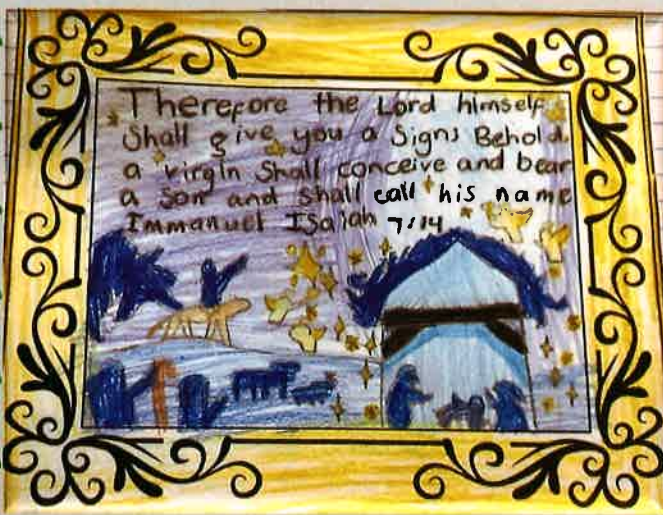 Therefore the Lord himself
Shall give you a Signs Behold,
a virgin Shall conceive and bear
a Son and Shall call his name
Immanuel ISaiah 7:14